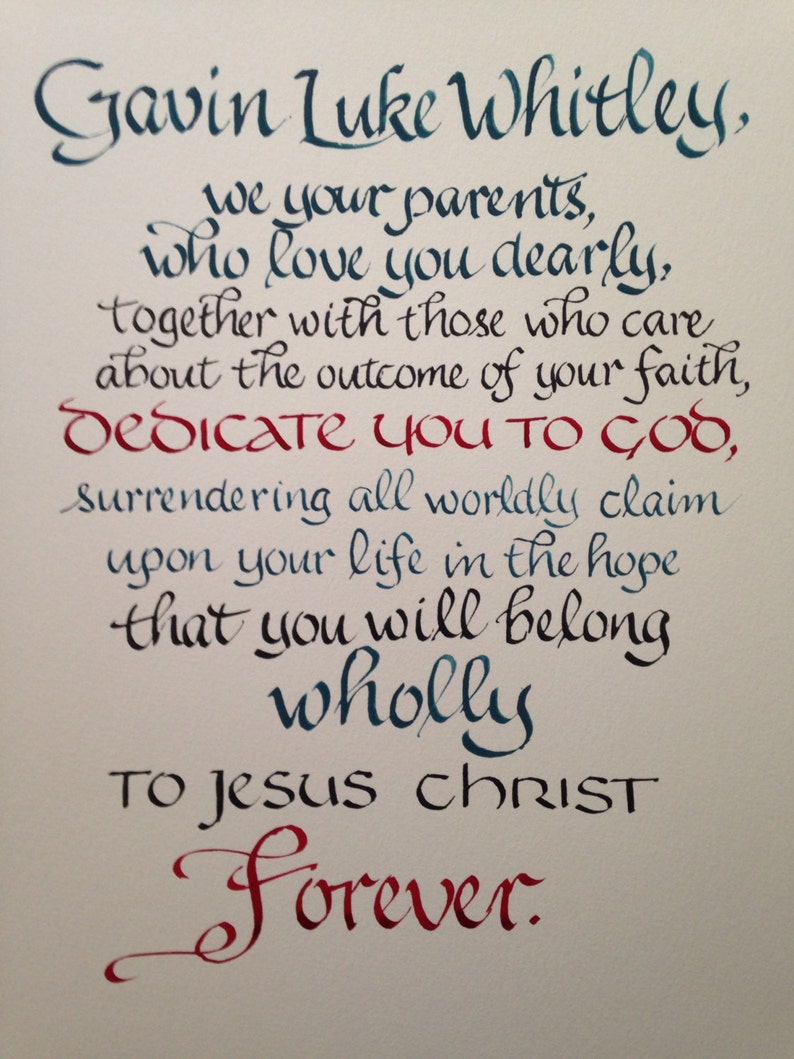 Gavin Luke Whitley,
we your parents,
who love you dearly,
together with those who care
about the outcome of your faith,
dedicate you to God,
surrendering all worldly claim
upon your life in the hope
that you will belong
wholly
to Jesus Christ
Forever.